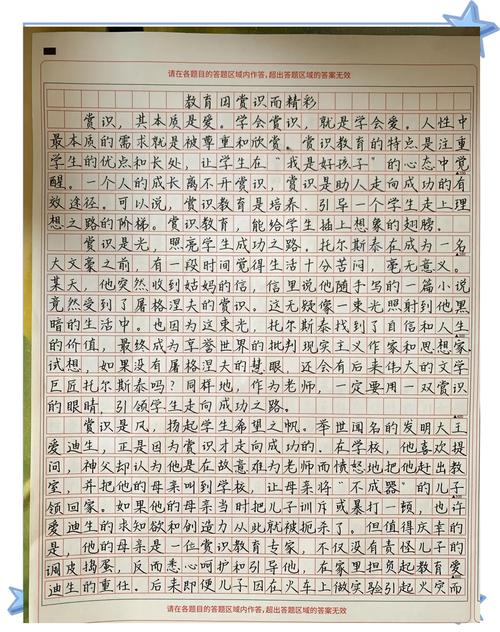 请在各题目的答题区域内作答,超出答题区域的答案无效
教育因赏识而精彩
赏识,其本质是爱。学会赏识,就是学会爱。人性中
最本质的需求就是被尊重和欣赏。赏识教育的特点是注重
学生的优点和长处,让学生在“我是好孩子”的心态中觉
醒。一个人的成长离不开赏识,赏识是助人走向成功的有
效途径。可以说,赏识教育是培养、引导一个学生走上理
想之路的阶梯。赏识教育,能给学生插上想象的翅膀。
赏识是光,照亮学生成功之路,托尔斯泰在成为一名
大文豪之前,有一段时间觉得生活十分苦闷,毫无意义。
某天,他突然收到姑妈的信,信里说他随手写的一篇小说
竟然受到了屠格涅夫的赏识。这无疑像一束光照射到他黑
暗的生活中。也因为这束光,托尔斯泰找到了自信和人生
的价值,最终成为享誉世界的批判现实主义作家和思想家。
试想,如果没有屠格涅夫的慧眼,还会有后来伟大的文学
巨匠托尔斯泰吗?同样地,作为老师,一定要用一双赏识
的眼睛,引领学生走向成功之路。
赏识是风,扬起学生希望之帆。举世闻名的发明大王
爱迪生,正是因为赏识才走向成功的。在学校,他喜欢提
问,神父却认为他是在故意难为老师而愤怒地把他赶出教
室,并把他的母亲叫到学校,让母亲将“不成器”的儿子
领回家。如果他的母亲当时把儿子训斥或暴打一顿,也许
爱迪生的求知欲和创造力从此就被扼杀了。但值得庆幸的
是,他的母亲是一位赏识教育专家,不仅没有责怪儿子的
调皮捣蛋,反而悉心呵护和引导他,在家里担负起教育爱
迪生的重任。后来即便儿子因在火车上做实验引起火灾而
请在各题目的答题区域内作答,超出答题区域的答案无效